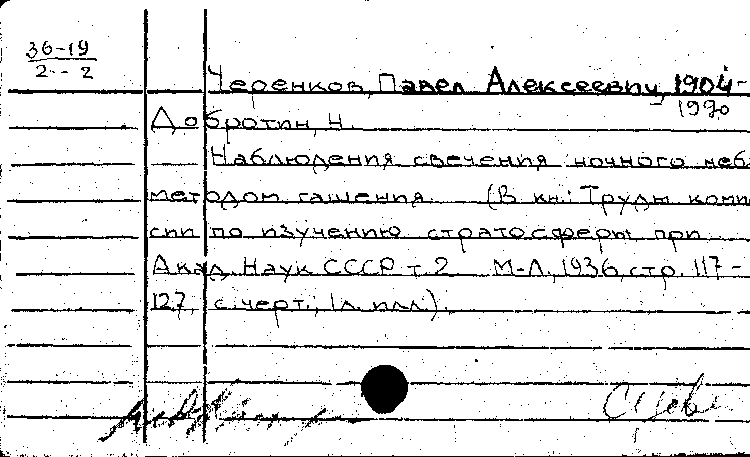 36-19
2--2
Черенков, Павел Алексеевич, 1904-
1990
Добротин, Н.
Наблюдения свечения ночного неб
методом гашения. (В кн.: Труды коми
сии по изучению стратосферы при
Акад. Наук СССР т. 2 М-Л, 1936, стр. 117-
127, с черт., 1 л. илл.).